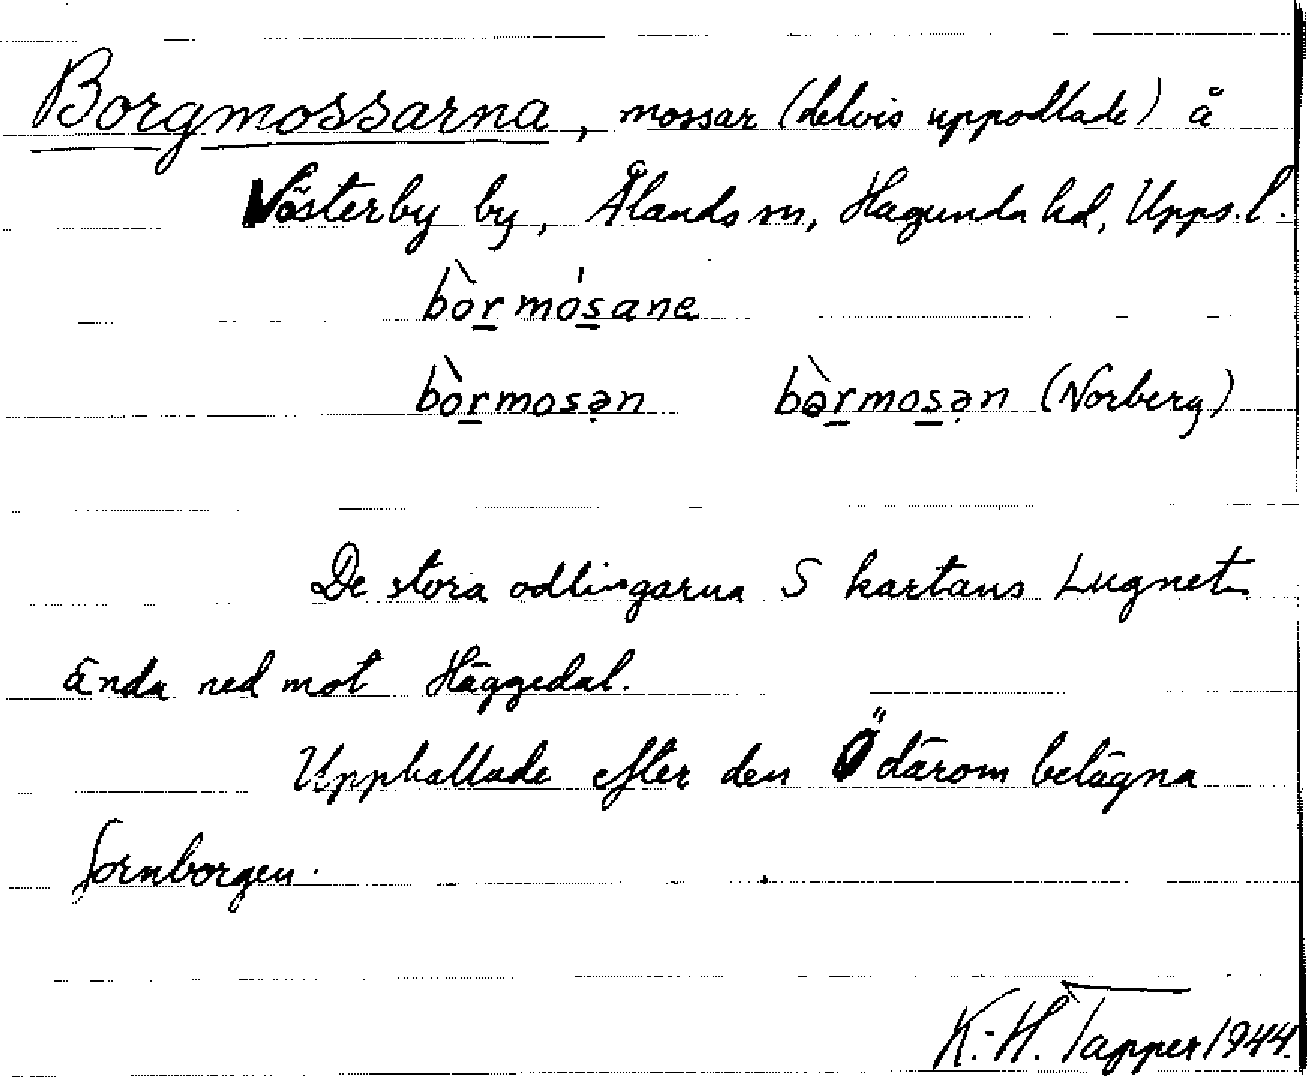 Borgmossarna, mossar (delvis uppodlade) å
Västerby by, Ålands sn, Hagunda hd, Upps. l.
bòr mósane
bòrmosən bòrmosən (Norberg)
De stora odlingarna S kartans Lugnet
ända ned mot Häggedal.
Uppkallade efter den Ö därom belägna
fornborgen.
K.-H. Tapper 1944.